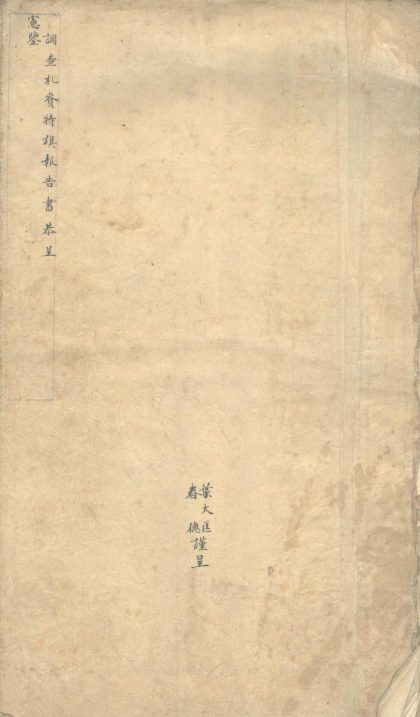 調查札賚特旗報告書恭呈
憲鑒
葉大匡
春德
謹呈